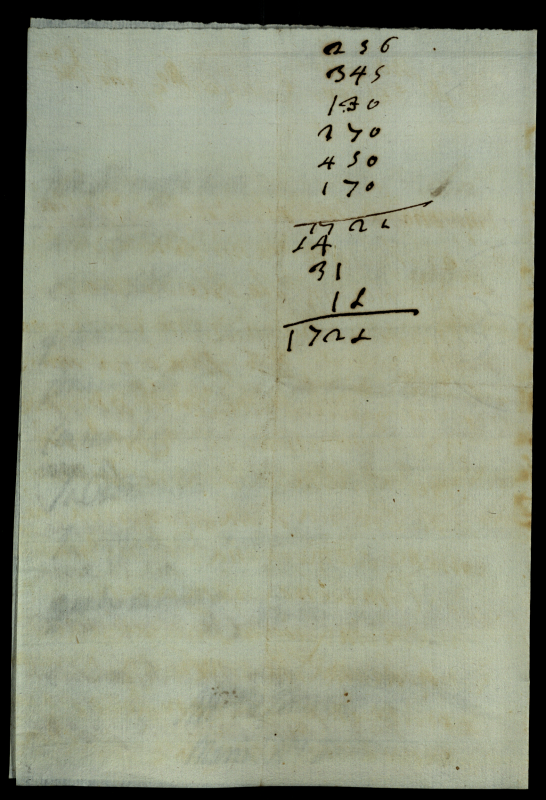 256
345
130
370
450
170
1721
14
31
11
1721